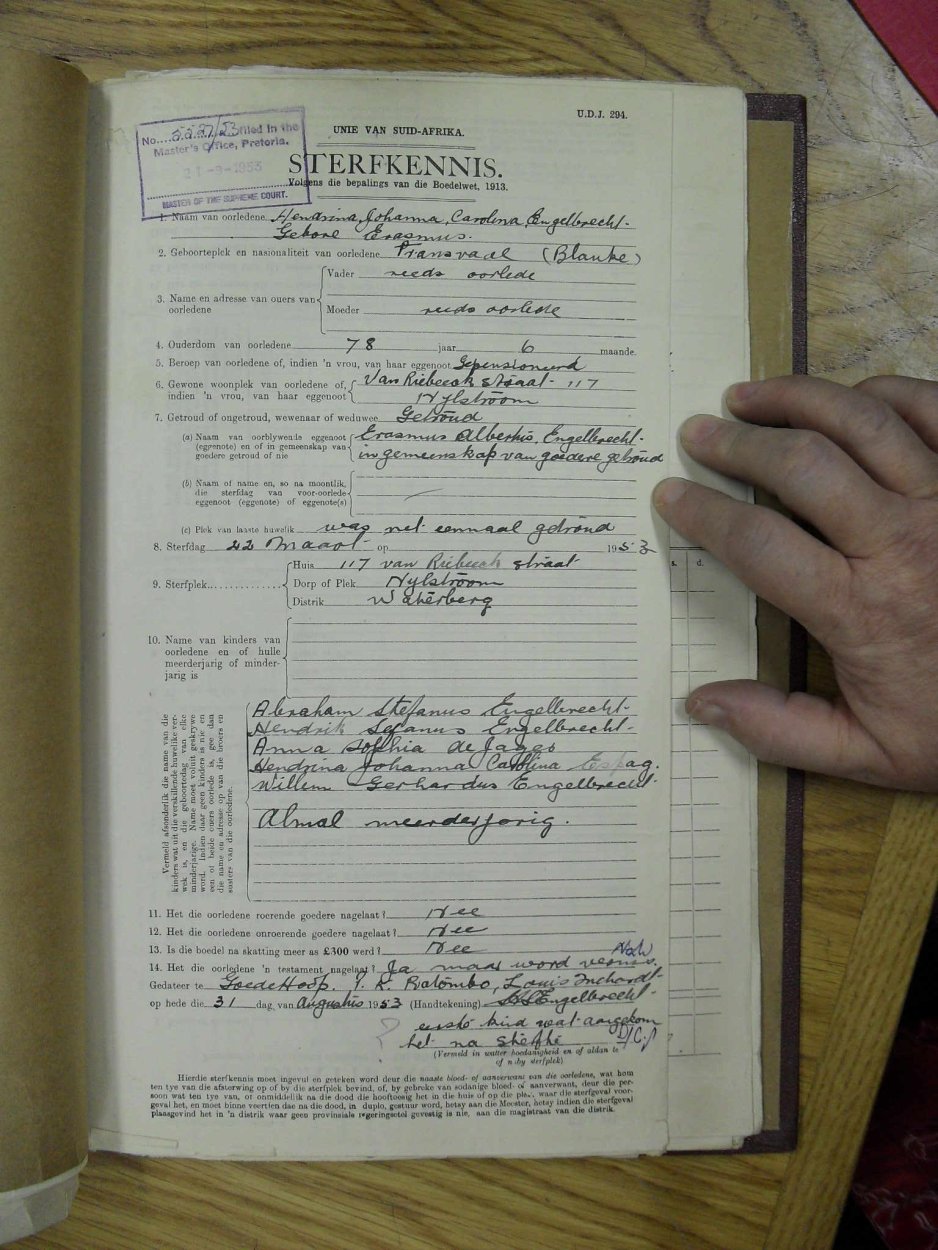 U.D.J. 294.
No....2227/53 filed in the
Master's Office, Pretoria.
21-9-1953
MASTER OF THE SUPREME COURT.
UNIE VAN SUID-AFRIKA.
STERFKENNIS.
Volgens die bepalings van die Boedelwet, 1913.
1. Naam van oorledene Hendrina Johanna Carolina Engelbrecht
Gebore Erasmus.
2. Geboorteplek en nasionaliteit van oorledene Transvaal (Blanke)
3. Name en adresse van ouers van oorledene
Vader reeds oorlede
Moeder reeds oorlede
4. Ouderdom van oorledene 78 jaar 6 maande.
5. Beroep van oorledene of, indien 'n vrou, van haar eggenoot Gepensioneerd
6. Gewone woonplek van oorledene of, Van Riebeeck straat 117
indien 'n vrou, van haar eggenoot Nylstroom
7. Getroud of ongetroud, wewenaar of weduwee Getroud
(a) Naam van oorblywende eggenoot Erasmus Albertus Engelbrecht
(eggenote) en of in gemeenskap van in gemeenskap van goedere getroud
goedere getroud of nie
(b) Naam of name en, so na moontlik,
die sterfdag van voor-oorlede
eggenoot (eggenote) of eggenote(s)
(c) Plek van laaste huwelik was net eenmaal getroud
8. Sterfdag 22 Maart op 1953
9. Sterfplek
Huis 117 van Riebeeck straat
Dorp of Plek Nylstroom
Distrik Waterberg
10. Name van kinders van
oorledene en of hulle
meerderjarig of minder-
jarig is
Vermeld afsonderlik die name van die
kinders wat uit die verskillende huwelike ver-
wek is, en die geboortedag van elke
minderjarige. Name moet voluit geskrywe
word. Indien daar geen kinders is nie en
een of beide ouers oorlede is, gee dan
die name en adresse op van die broers en
susters van die oorledene.
Abraham Stefanus Engelbrecht
Hendrik Stefanus Engelbrecht
Anna Sofhia de Jager
Hendrina Johanna Carolina Espag.
Willem Gerhardus Engelbrecht
Almal meerderjorig.
11. Het die oorledene roerende goedere nagelaat? Nee
12. Het die oorledene onroerende goedere nagelaat? Nee
13. Is die boedel na skatting meer as £300 werd? Nee
14. Het die oorledene 'n testament nagelaat? Ja maar word
Gedateer te Goede Hoop, Louis
op hede die 31 dag van Augustus 1953 (Handtekening) Engelbrecht
eerste kind wat aangekom
het na sterfte
(Vermeld in watter hoedanigheid en of aldan te
of naby sterfplek)
Hierdie sterfkennis moet ingevul en geteken word deur die naaste bloed- of aanverwant van die oorledene, wat hom
ten tye van die afsterwing op of by die sterfplek bevind, of, by gebreke van sodanige bloed- of aanverwant, deur die per-
soon wat ten tye van, of onmiddelik na die dood die hooftoesig het in die huis of op die plek, waar die sterfgeval voor-
geval het, en moet binne veertien dae na die dood, in duplo, gestuur word, hetsy aan die Meester, hetsy indien die sterfgeval
plaasgevind het in 'n distrik waar geen provinsiale regeringsetel gevestig is nie, aan die magistraat van die distrik.
s. d.